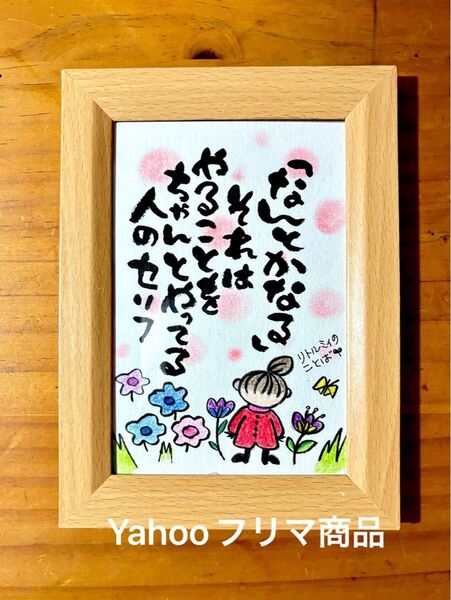 「なんとかなる」
それは
やることを
ちゃんとやってる
人のセリフ
リトルミィの
ことば
Yahooフリマ商品